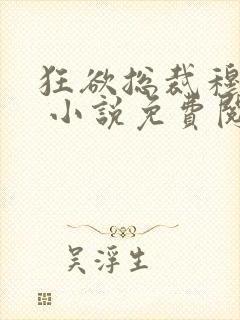 狂欲总裁穆
小説免費閱
吴浮生